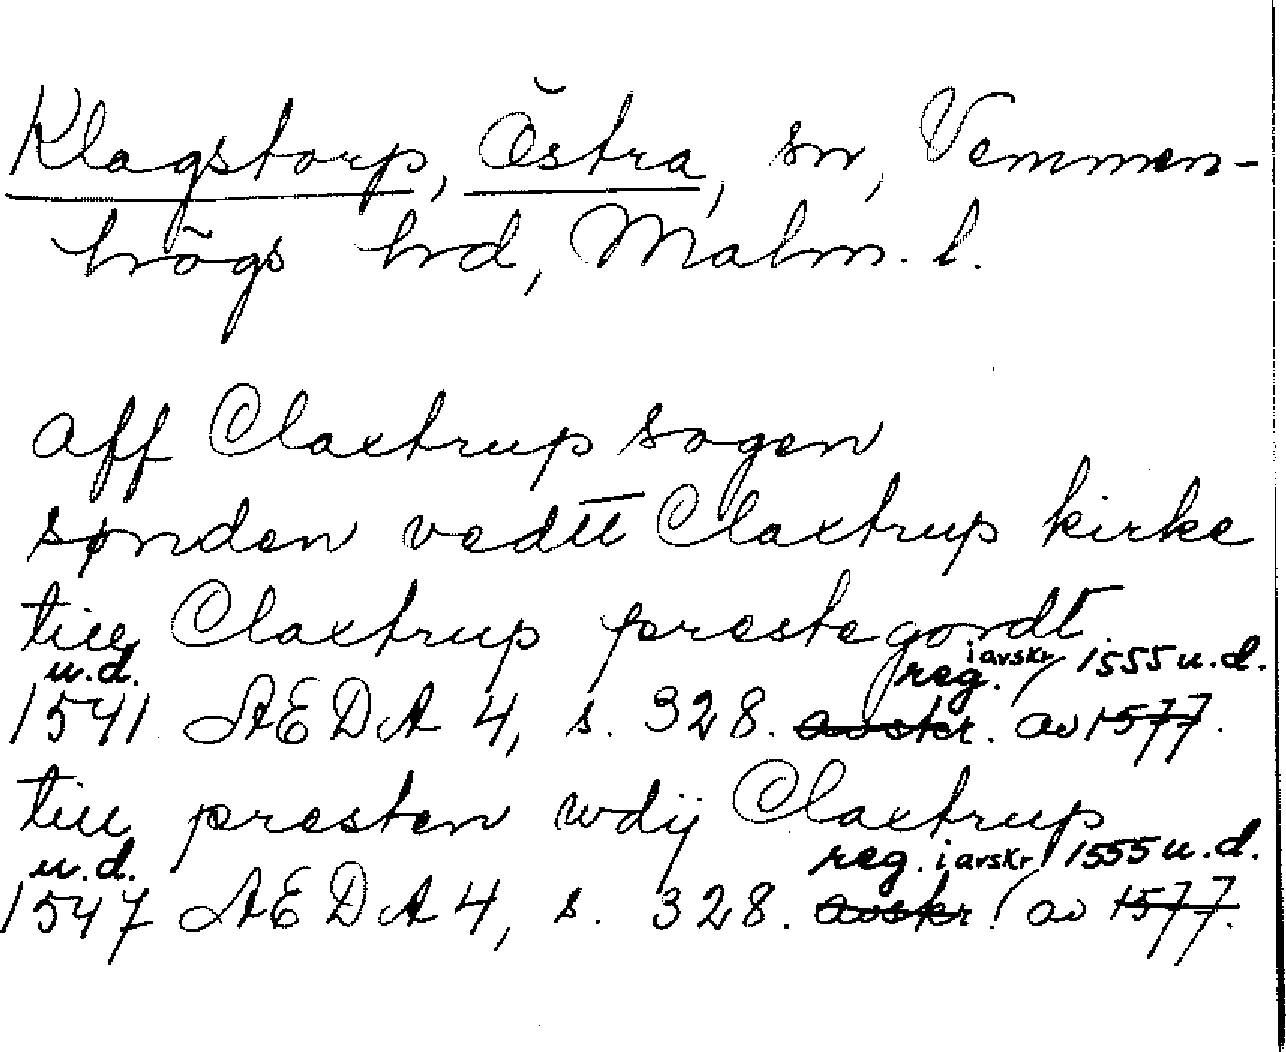 Klagstorp, Östra, sn, Vemmen-
högs hd, Malm. l.
aff Claxtrup sogen
sønden vedtt Claxtrup kirke
till Claxtrup prestegordt
u.d. reg. i avskr 1555 u.d.
1541 AEDA 4, s. 328. avskr. av 1577.
till presten wdij Claxtrup
u.d. reg. i avskr 1555 u.d.
1547 AEDA 4, s. 328. avskr. av 1577.